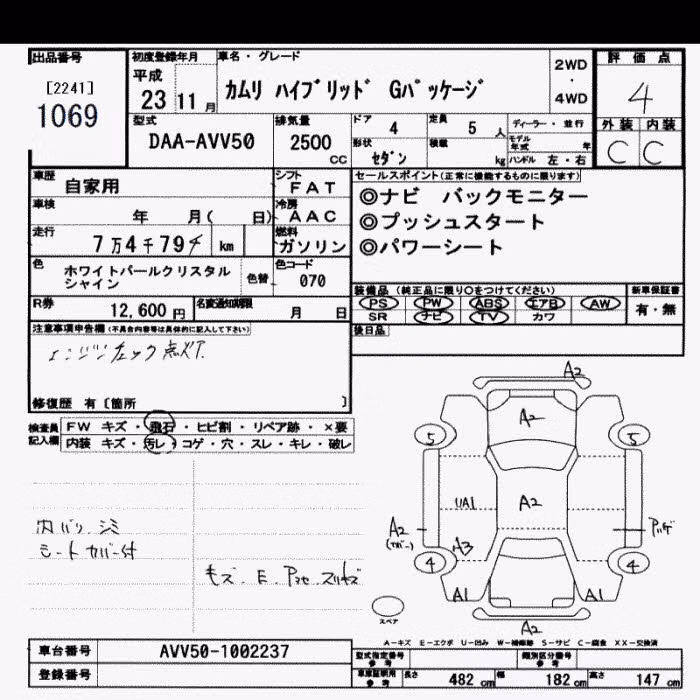 出品番号
[2241]
1069
初度登録年月
平成
23 11 月
車名・グレード
カムリ ハイブリッド Gパッケージ
2WD
・
4WD
評価点
4
外装 内装
C C
型式
DAA-AVV50
排気量
2500
CC
ドア 4
定員 5 人
ディーラー・並行
形状 セダン
積載 kg
モデル年式 年
ハンドル 左・右
車歴 自家用
シフト FAT
車検 年 月( 日)
冷房 AAC
走行 7万4千794 km
燃料 ガソリン
色 ホワイトパールクリスタル
シャイン
色替
色コード 070
R券 12,600 円
名変通知期限 月 日
セールスポイント(正常に機能するものに限ります)
◎ナビ バックモニター
◎プッシュスタート
◎パワーシート
装備品(純正品に限り○をつけてください)
PS PW ABS エアB AW
SR ナビ TV カワ
新車保証書
有・無
後日品
注意事項申告欄(不具合内容等は具体的に記入して下さい)
エンジンチェック点灯
修復歴 有〔箇所 〕
検査員
記入欄
FW キズ・飛石・ヒビ割・リペア跡・×要
内装 キズ・汚レ・コゲ・穴・スレ・キレ・破レ
内バリ シミ
シートカバー付
キズ、E
A2
A2
5 5
UA1
A2
A2
A3
4 4
A1 A1
A2
スペア
A-キズ E-エクボ U-凹み W-補修跡 S-サビ C-腐食 XX-交換済
車台番号 AVV50-1002237
登録番号
型式指定番号
参考
類別区分番号
参考
車庫証明用
参考
長さ 482 cm 幅 182 cm 高さ 147 cm